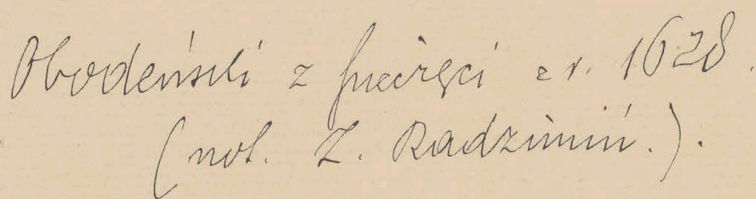 Obodeński z pieczęci z r. 1628.
(not. Z. Radzimiń.).